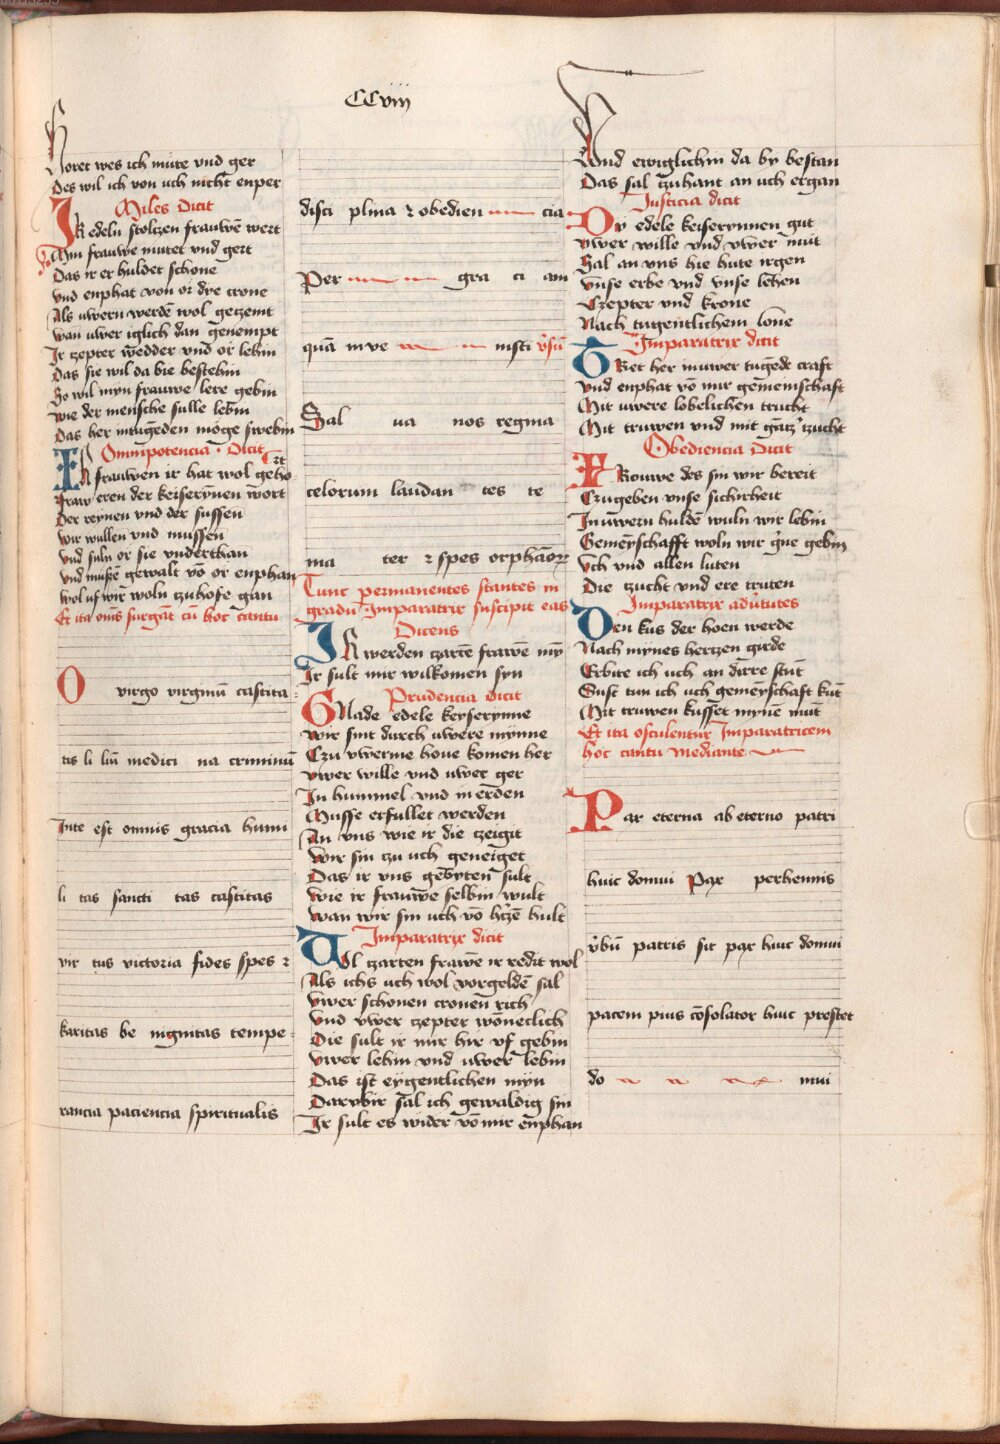 CCviii
Horet wes ich mute vnd ger
Des wil ich von uch nicht enper
Miles Dicit
Ir edeln stoltzen frauwē wert
Myn frauwe mutet vnd gert
Das ir er huldet schone
vnd enphat von or dye crone
Als uwern werdē wol geczemt
wan uwer iglich dan genempt
Ir czepter wedder vnd or lehin
Das sie wil da bie bestehin
So wil myn frauwe lere gebin
wie der mensche sulle lebin
Das her intugeden moge swebin
Omnipotencia Dicit
Ir frauwen ir hat wol geho rt
frauweren der keiserynen wort
Der reynen vnd der sussen
wir wullen vnd mussen
vnd suln or sie vnderthan
vnd mussē gewalt vō or enphan
wol uf wir woln czuhofe gan
Et ita om̄s surgāt cū hoc cantu
O virgo virginū castita
tis li liū medici na criminū
Inte est omnis gracia humi
li tas sancti tas castitas
vir tus victoria fides spes ⁊
karitas be nignitas tempe
rancia paciencia spiritualis
disci plina ⁊ obedien cia
Per gra ci am
quā in ve nisti
Sal ua nos regina
celorum laudan tes te
ma ter ⁊ spes orphāoꝝ
Tunc permanentes stantes in
gradu Imparatrix suscipit eas
Dicens
Ir werden czartē frawē my̅
Ir sult mir wilkomen syn
Prudencia dicit
Gnade edele keyserynne
wir sint durch uwere mynne
Czu vwerme houe komen her
vwer wille vnd uwer ger
In hummel vnd in erden
Musse erfullet werden
An vns wie ir die czeigit
wir sin zu uch geneiget
Das ir vns gebyten sult
wie ir frauwe selbin wult
wan wir sin uch vō h'czē hult
Imparatrix dicit
Wol czarten frawē ir redit wol
Als ichs uch wol vorgeldē sal
vwer schonen cronen rich
vnd vwer czepter wōneclich
Die sult ir mir hir uf gebin
vwer lehin vnd uwer lebin
Das ist eygentlichen myn
Darvbir sal ich gewaldig sin
Ir sult es wider vō mir enphan
Vnd ewiglichin da by bestan
Das sal czuhant an uch ergan
Justicia dicit
Dy edele keiserynnen gut
vwer wille vnd vwer mut
Sal an vns hie hute irgen
vnse erbe vnd vnse lehen
Czepter vnd krone
Nach tugentlichem lone
Imparatrix dicit
Tret her in uwer tugēde craft
vnd enphat vō mir gemeinschaft
Mit uwere lobelichen trucht
Mit truwen vnd mit gācz' zucht
Obediencia Dicit
Frouwe des sin wir bereit
Czugeben vnse sichirheit
In uwern huldē wuln wir lebin
Gemeyschafft woln wir g'ne gebin
Vch vnd allen luten
Die zucht vnd ere truten
Imparatrix ad v'tutes
Den kus der hoen werde
Nach mynes hertzen girde
Erbite ich uch an dirre stūt
Sust tun ich uch gemeyschaft kūt
Mit truwen kusset mynē mūt
Et ita osculentur Imparatricem
hoc cantu mediante
Pax eterna ab eterno patri
huic domui Pax perhennis
v'bū patris sit pax huic domui
pacem pius cōsolator huic prestet
do mui